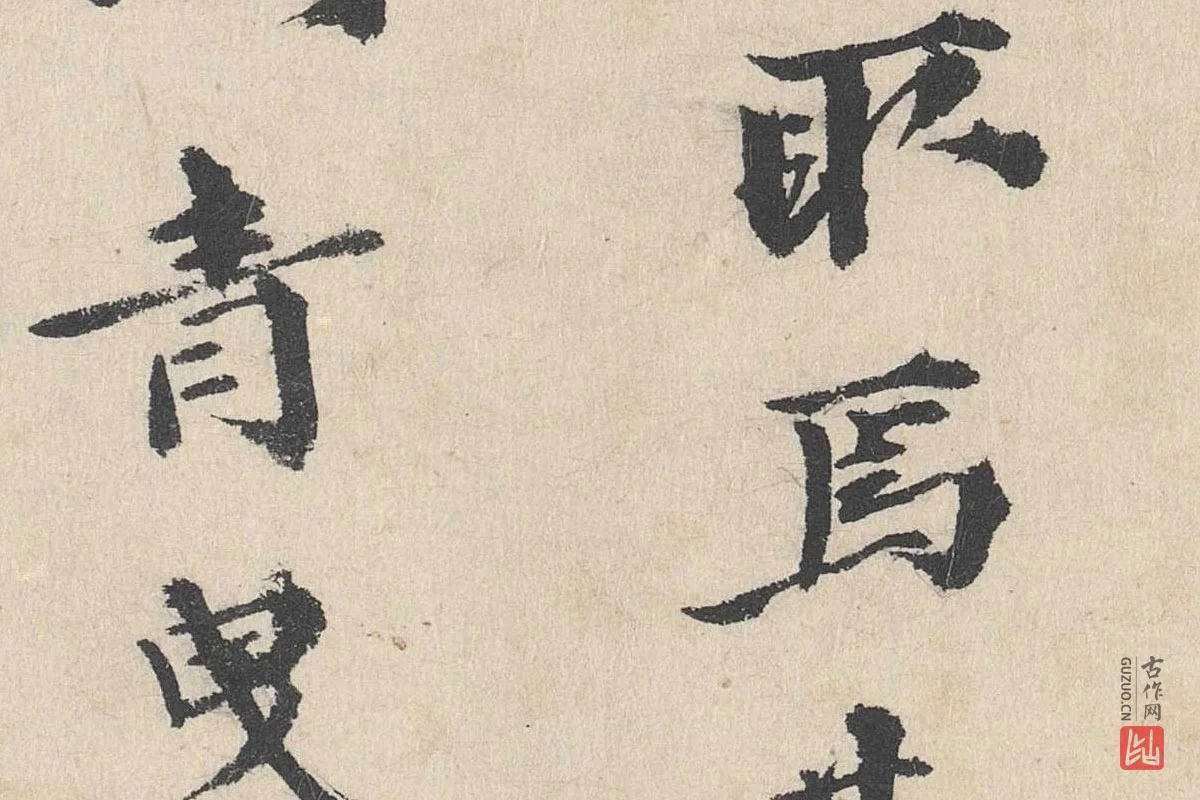 取焉
青叟
古作网
GUZUO.CN